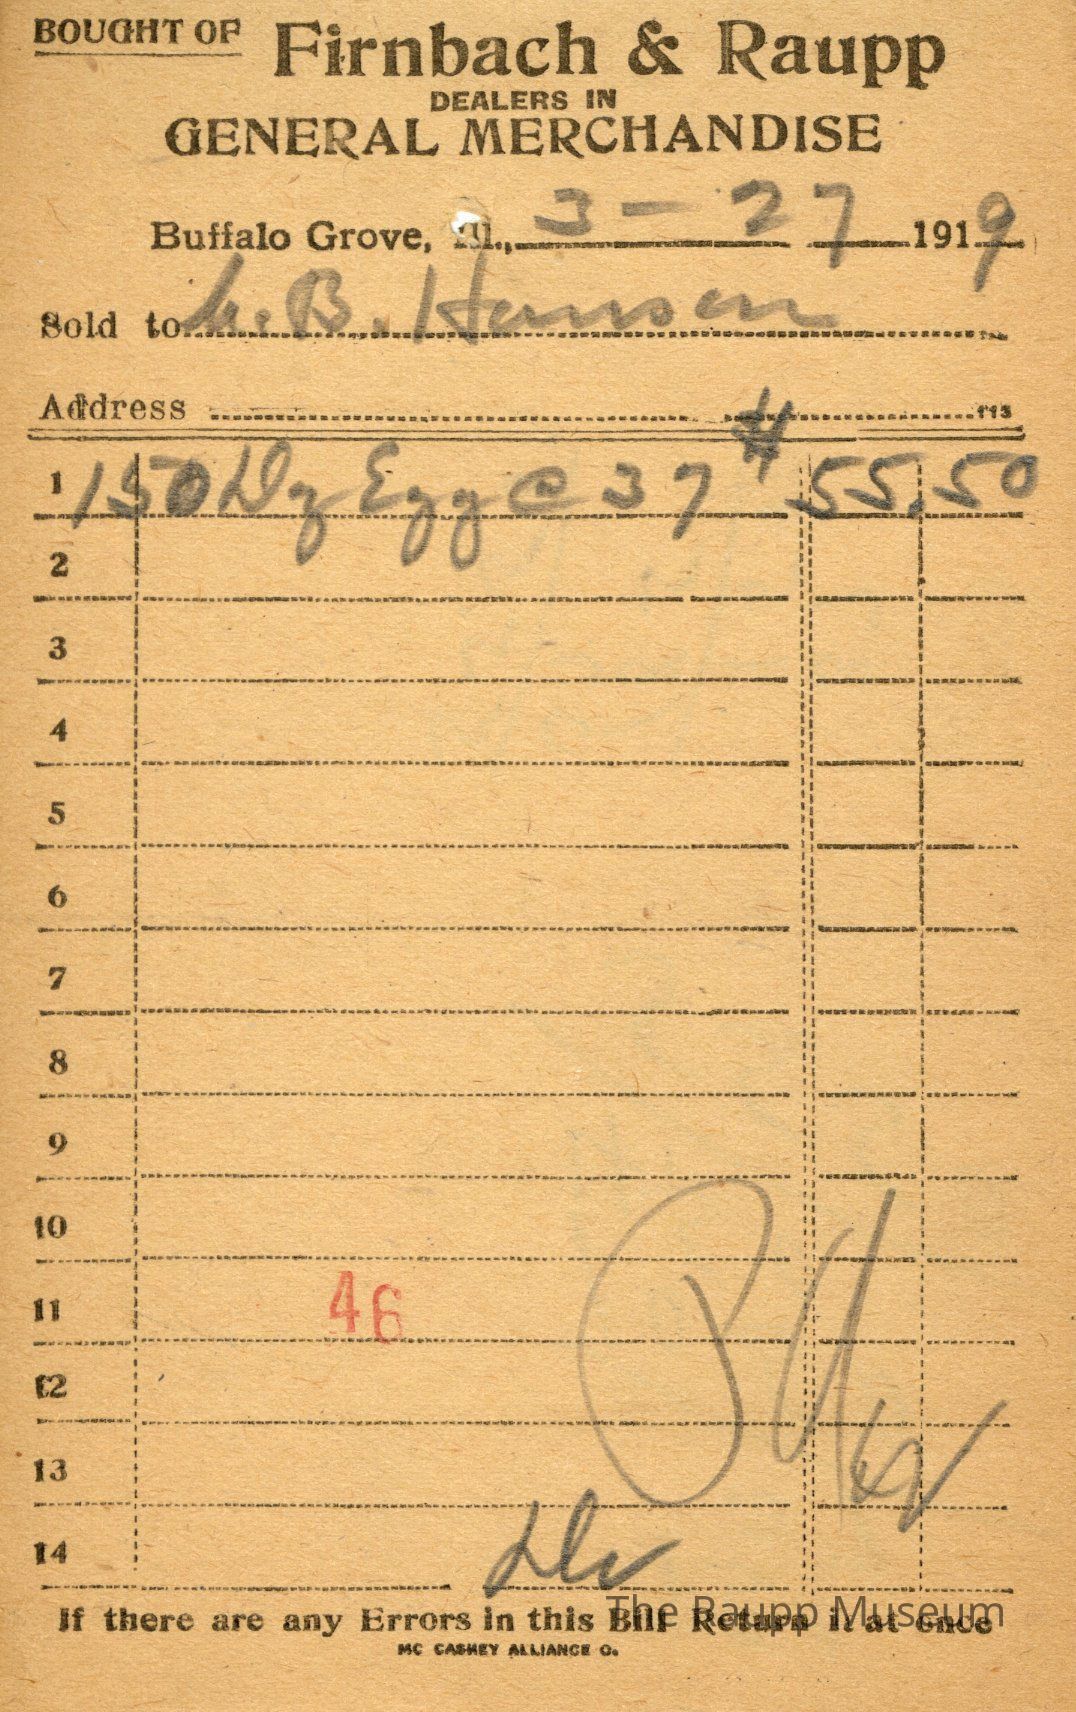 BOUGHT OF Firnbach & Raupp
DEALERS IN
GENERAL MERCHANDISE
Buffalo Grove, Ill., 3 - 27 1919
Sold to B. Hansen
Address
1 150 Dz Egg @ 37 # 55.50
2
3
4
5
6
7
8
9
10
11 46
12
13
14
If there are any Errors in this Bill Return it at once
The Raupp Museum
MC CASKEY ALLIANCE O.